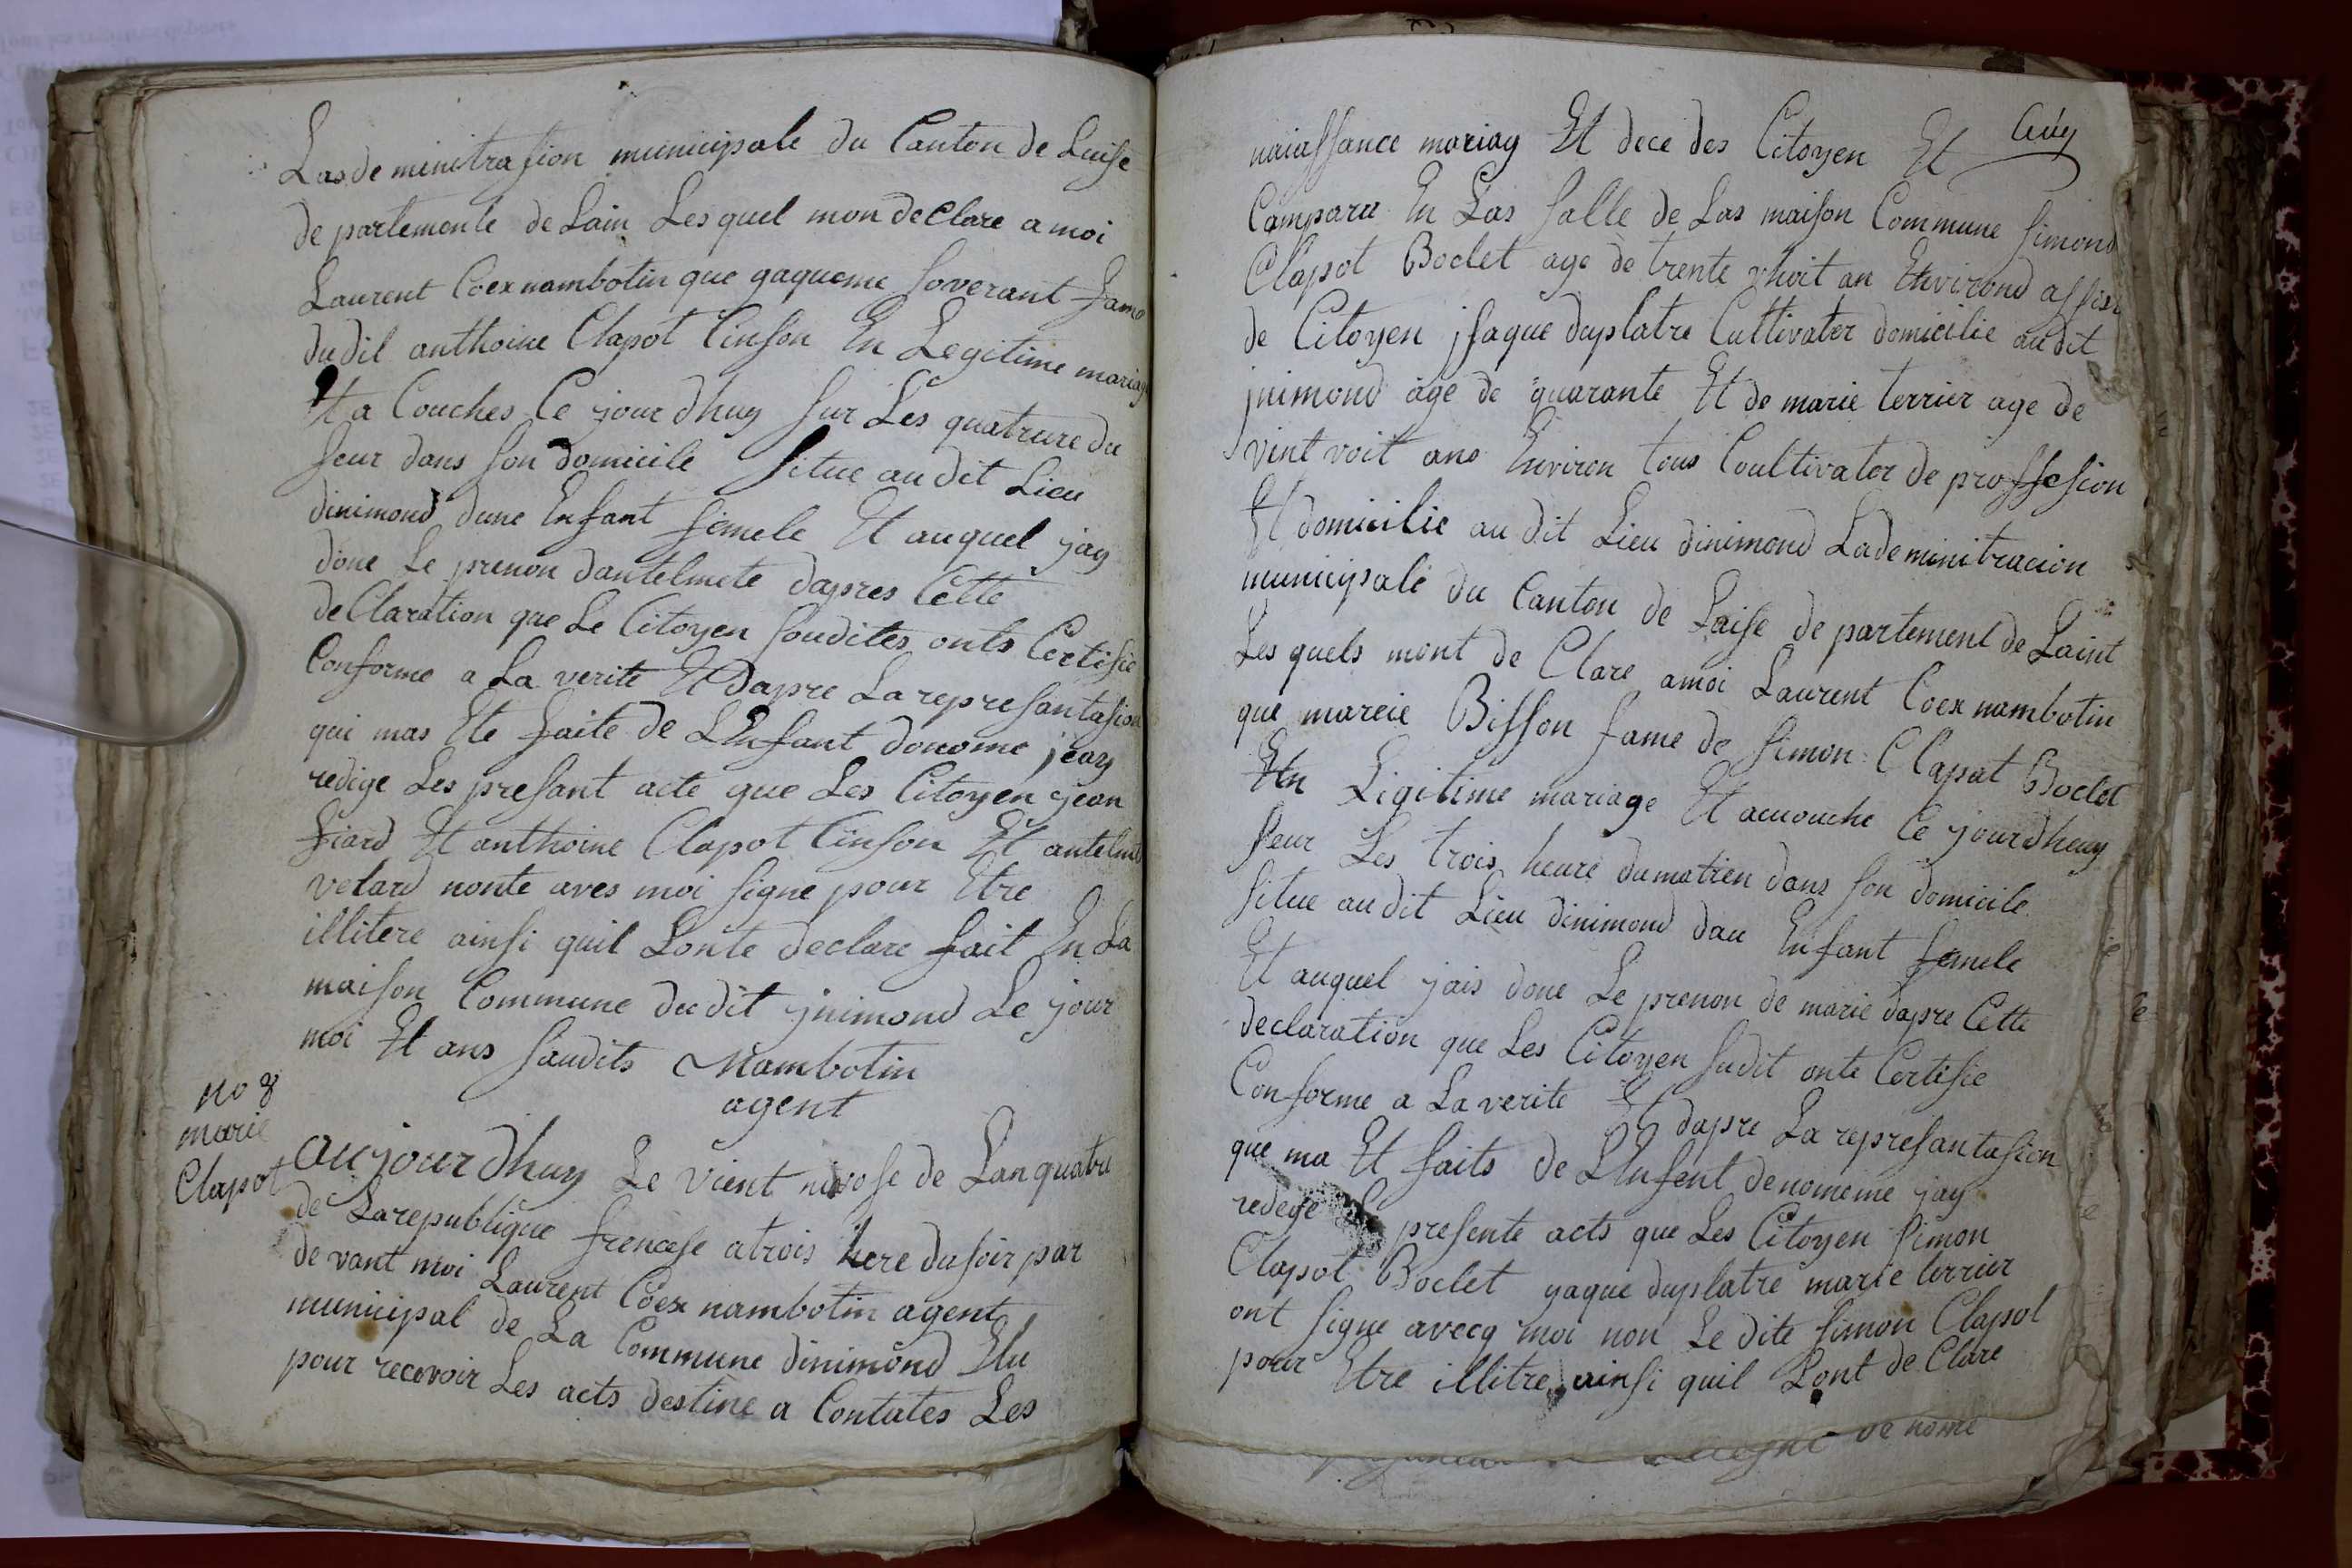 Las de minitrasion municipale du Canton de Luise
de partemente de Lain Les quel mon de Clare a moi
Laurent Coex nambotin que gaqueme soverant fame
du dit anthoine Clapot Cinson En Legitime mariage
Et a Couches Ce jour dhuy sur Les quatrure du
seur dans son domicile situe au dit Lieu
dinimond dune Enfant femele Et auquel jay
done Le prenon dantelmete dapres Cette
de Claration que Le Citoyen soudites onts Certifie
Conforme a La verite Et dapre La represantasion
qui mas Ete faite de LEnfant denome jeay
redige Les presant acte que Les Citoyen jean
fiard Et anthoine Clapot Cinson Et antelme
velard nonte aves moi signe pour Etre
illitere ainsi quil Lonte declare fait En La
maison Commune du dit jnimond Le jour
moi Et ans saudits Nambotin
agent
no 8
marie
Clapot
aujourdhuy Le vient nivose de Lan quatre
de La republique francese a trois here du soir par
de vant moi Laurent Coex nambotin agent
municipal de La Commune dinimond Elu
pour recevoir Les acts destine a Contates Les
naiassance mariag Et dece des Citoyen Et
Comparu En Las salle de Las maison Commune simond
Clapot Boclet age de trente vhoit an Environd assis
de Citoyen jsaque duplatre Cultivater domicilie au dit
jnimond age de quarante Et de marie terrier age de
vint voit ans Environ tous Coultivator de proffesion
Et domicilie au dit Lieu dinimond Lade minitracion
municipale du Canton de Laise de partement de Laint
Les quels mont de Clare a moi Laurent Coex nambotin
que mareie Bisson fame de simon Clapat Boclet
En Ligitime mariage Et acuouche Ce jourdheuy
seur Les trois heure du matien dans son domicile
situe au dit Lieu dinimond dau Enfant femele
Et auquel jais done Le prenon de marie dapre Cette
declaration que Les Citoyen sudit onte Certifie
Conforme a La verite Et dapre La represantasion
que ma Et faits de LEnfent denomeme jay
redege presente acts que Les Citoyen simon
Clapot Boclet yaque duplatre marie terrier
ont signe avecq moi non Le dite simon Clapot
pour Etre illitre ainsi quil Lont de Clare
de nome